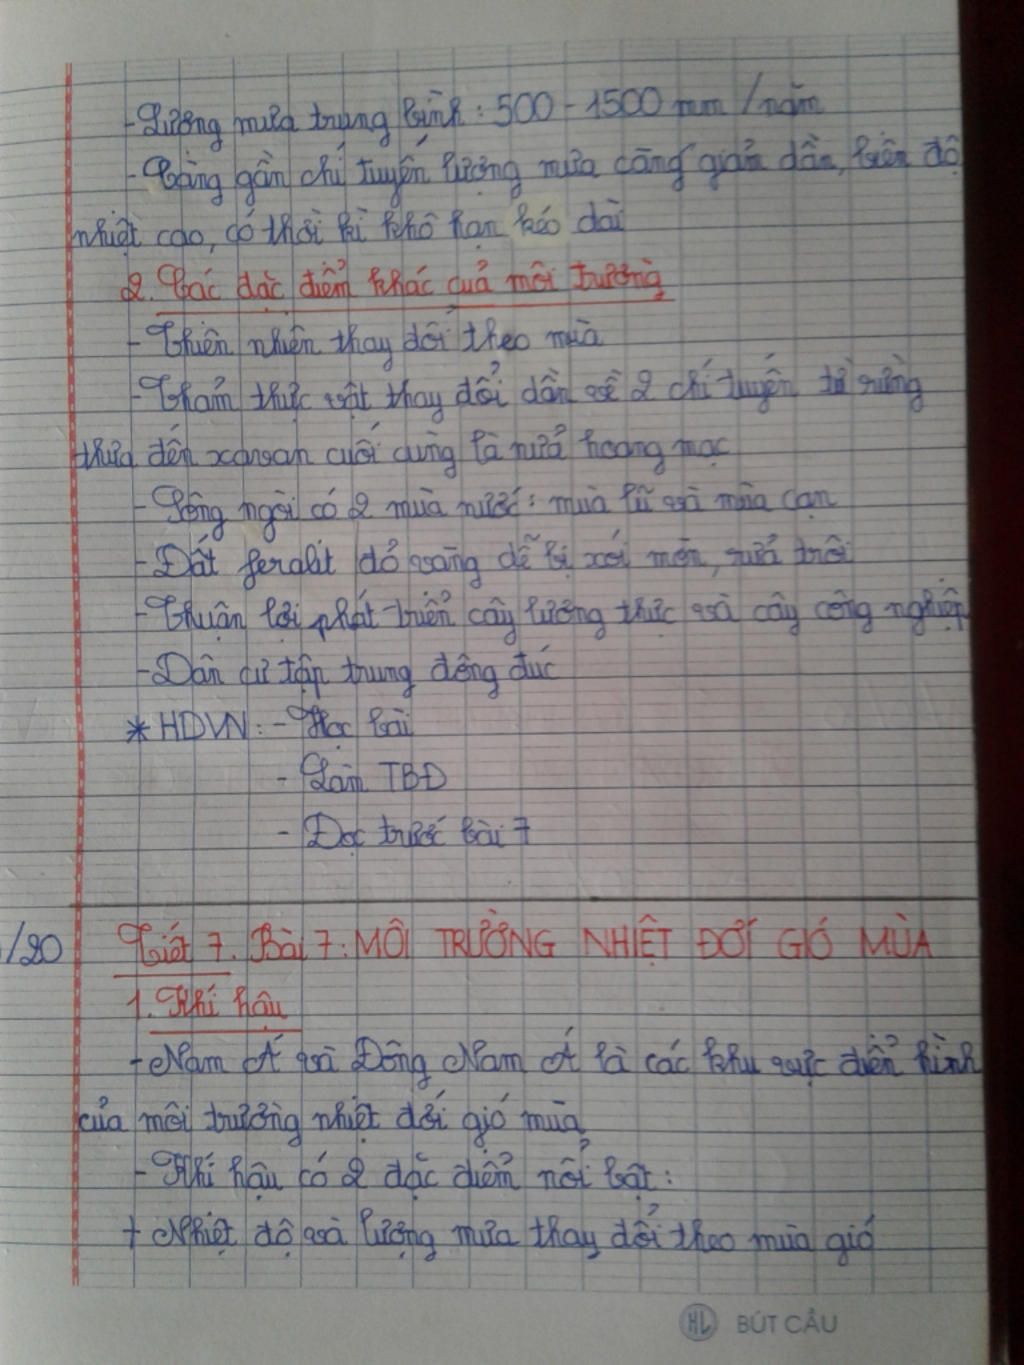 - Lượng mưa trung bình : 500 - 1500 mm /năm
- Càng gần chí tuyến lượng mưa càng giảm dần, biên độ
nhiệt cao, có thời kì khô hạn kéo dài
2. Các đặc điểm khác của môi trường
- Thiên nhiên thay đổi theo mùa
- Thảm thực vật thay đổi dần về 2 chí tuyến từ rừng
thưa đến xavan cuối cùng là nửa hoang mạc
- Sông ngòi có 2 mùa nước : mùa lũ và mùa cạn
- Đất feralit đỏ vàng dễ bị xói mòn, rửa trôi
- Thuận lợi phát triển cây lương thực và cây công nghiệp
- Dân cư tập trung đông đúc
* HDVN : - Học bài
- Làm TBĐ
- Đọc trước bài 7
/20 Tiết 7. Bài 7 : MÔI TRƯỜNG NHIỆT ĐỚI GIÓ MÙA
1. Khí hậu
- Nam Á và Đông Nam Á là các khu vực điển hình
của môi trường nhiệt đới gió mùa
- Khí hậu có 2 đặc điểm nổi bật :
+ Nhiệt độ và lượng mưa thay đổi theo mùa gió
HL BÚT CẦU